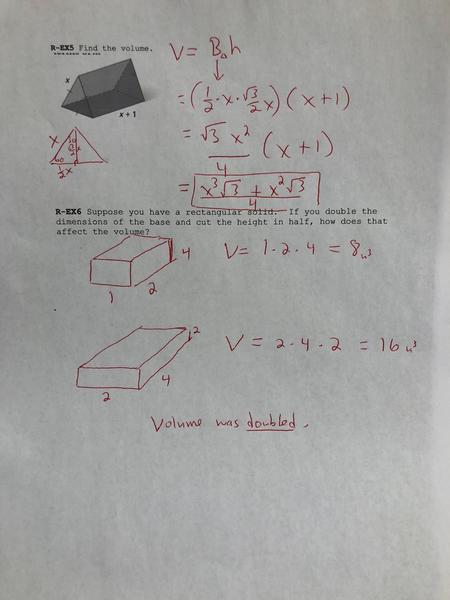 R-EX5 Find the volume.
V = B△h
x
x + 1
= (1/2 · x · √3/2 x) (x+1)
x
30
√3/2 x
60
1/2 x
= √3 x²/4 (x+1)
= x³√3 + x²√3/4
R-EX6 Suppose you have a rectangular solid. If you double the
dimensions of the base and cut the height in half, how does that
affect the volume?
4
2
1
V = 1 · 2 · 4 = 8u³
2
4
2
V = 2 · 4 · 2 = 16u³
Volume was doubled.